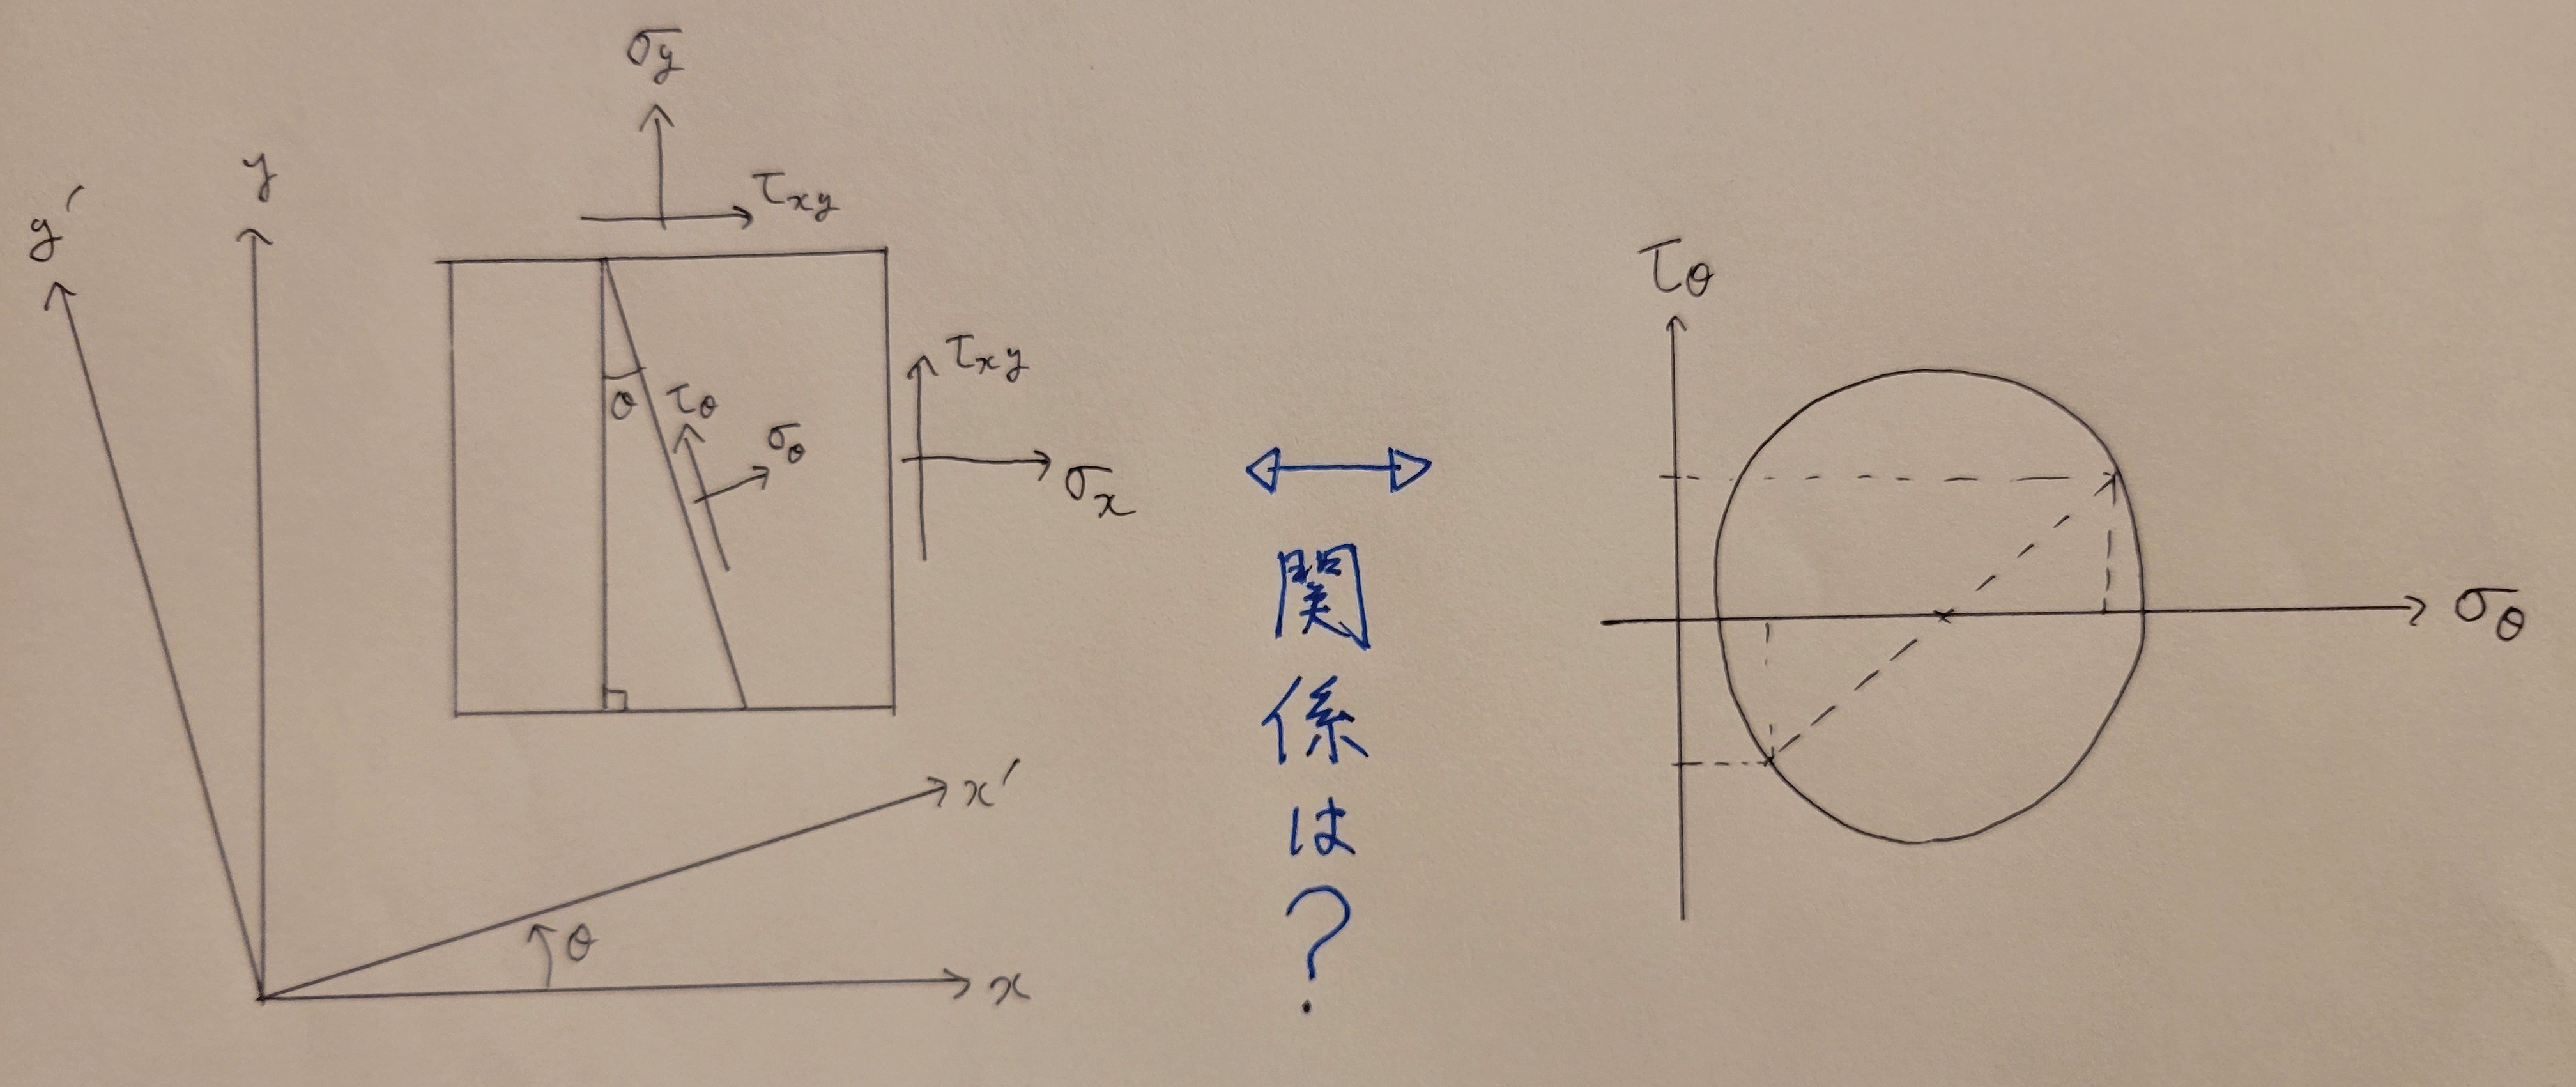 σy
τxy
y
y′
τxy
θ
τθ
σθ
σx
x′
θ
x
関係は?
τθ
σθ